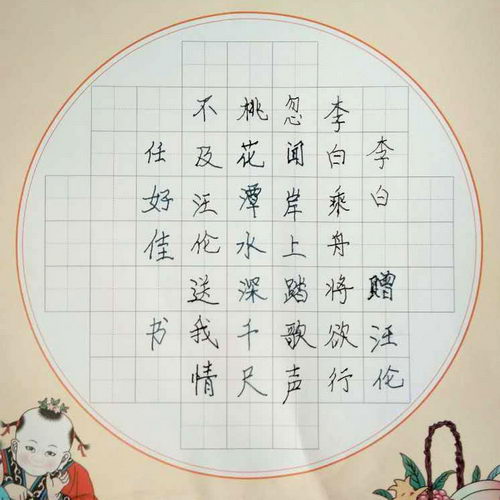 李白 赠汪伦
李白乘舟将欲行
忽闻岸上踏歌声
桃花潭水深千尺
不及汪伦送我情
任好佳 书